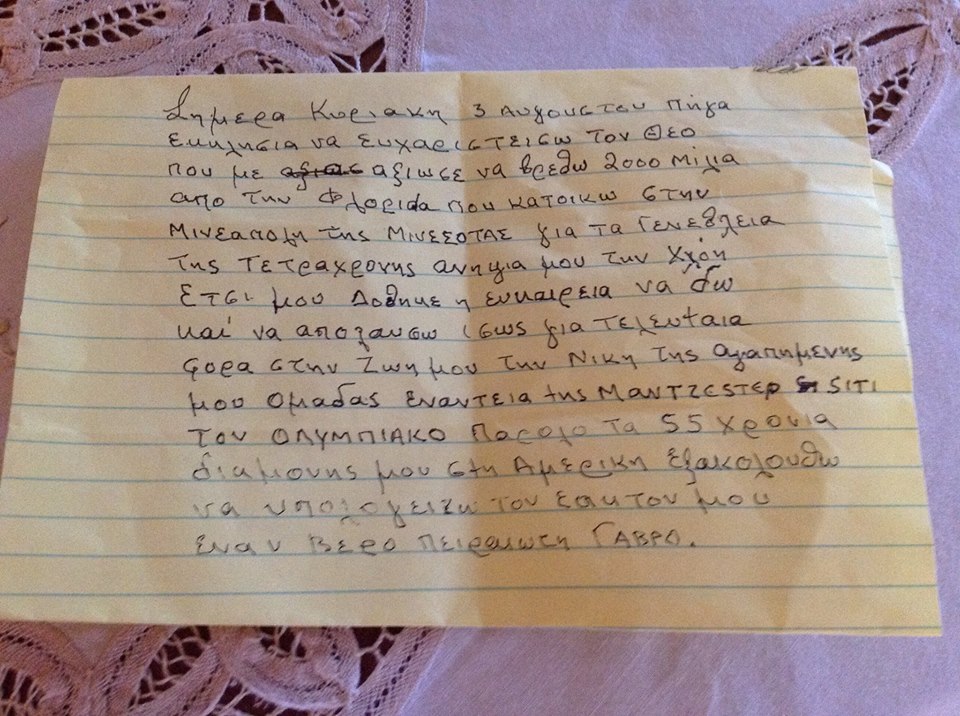 Σημερα Κυριακη 3 Αυγουστου Πηγα
εκκλησια να Ευχαριστεισω τον Θεο
που με αξιασ αξιωσε να βρεθω 2000 Μιλια
απο την Φλοριδα που κατοικω στην
Μινεαπολη της Μινεσοτας για τα Γενεθλεια
της Τετραχρονης ανηψια μου την Χλόη
Ετσι μου Δοθηκε η ευκαιρεια να δω
και να απολαυσω ισως για τελευταια
φορα στην Ζωη μου την Νικη της αγαπημενης
μου ομαδας εναντεια της Μαντζεστερ SITI
τον ΟΛΥΜΠΙΑΚΟ Παρολο τα 55 χρονια
διαμονης μου στη Αμερικη εξακολουθω
να υπολογειζω τον εαυτον μου
εναν Βερο Πειραιωτη ΓΑΒΡΟ.